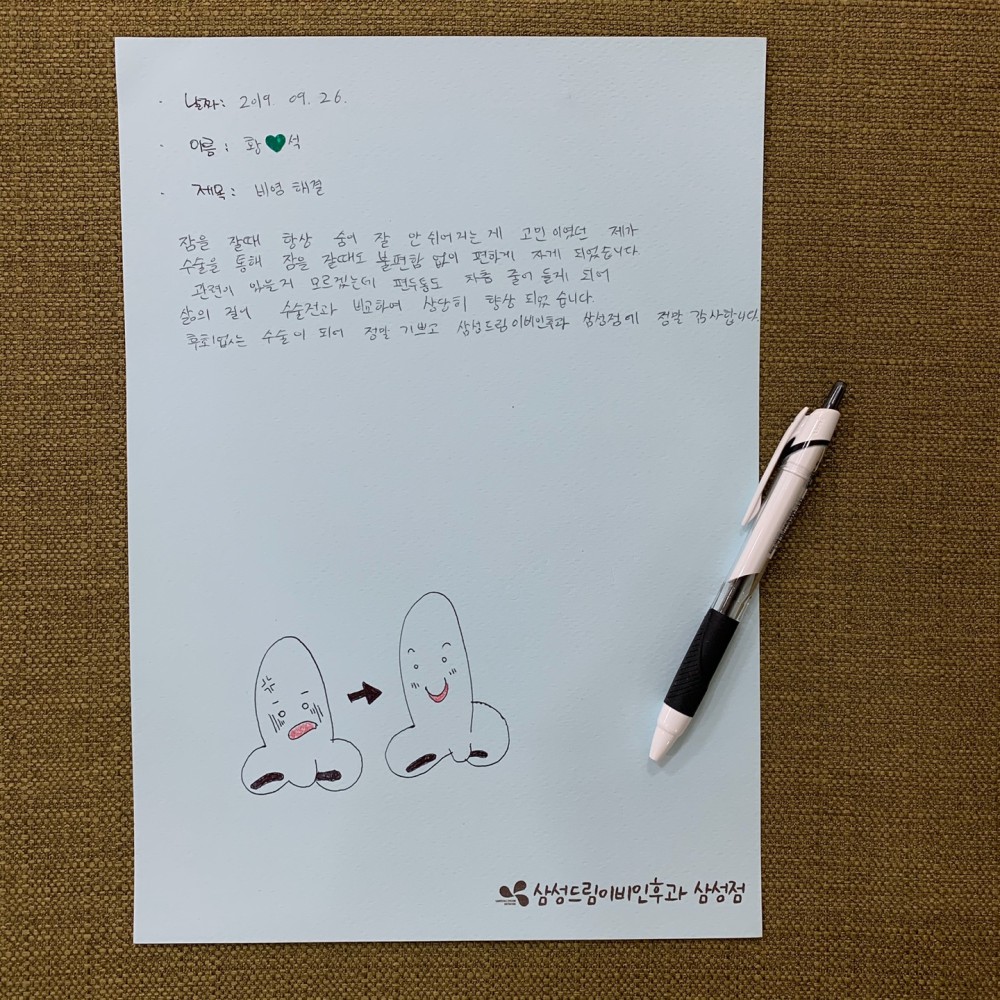 · 날짜: 2019. 09. 26.
· 이름: 황💚석
· 제목: 비염 해결
잠을 잘때 항상 숨이 잘 안 쉬어지는 게 고민이였던 제가
수술을 통해 잠을 잘때도 불편함 없이 편하게 자게 되었습니다.
관련이 있을지 모르겠는데 편두통도 차츰 줄어 들게 되어
삶의 질이 수술전과 비교하여 상당히 향상 되었습니다.
후회없는 수술이 되어 정말 기쁘고 삼성드림이비인후과 삼성점에 정말 감사합니다.
삼성드림이비인후과 삼성점